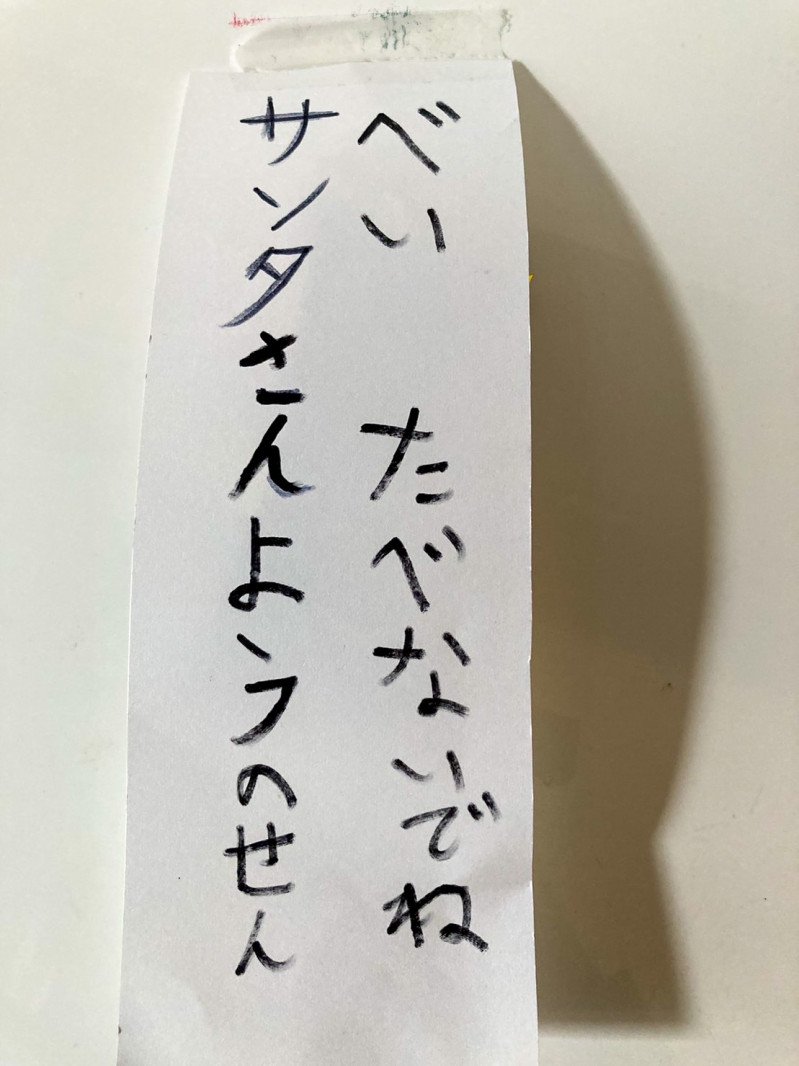 サンタさんようのせん
べい たべないでね